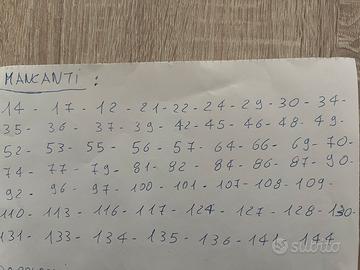 MANCANTI :
14 - 17 - 12 - 21 - 22 - 24 - 29 - 30 - 34 -
35 - 36 - 37 - 39 - 42 - 45 - 46 - 48 - 49 -
52 - 53 - 55 - 56 - 57 - 64 - 66 - 69 - 70 -
74 - 77 - 79 - 81 - 82 - 84 - 86 - 87 - 90 -
92 - 96 - 97 - 100 - 101 - 107 - 108 - 109 -
110 - 113 - 116 - 117 - 124 - 127 - 128 - 130 -
131 - 133 - 134 - 135 - 136 - 141 - 144
subito